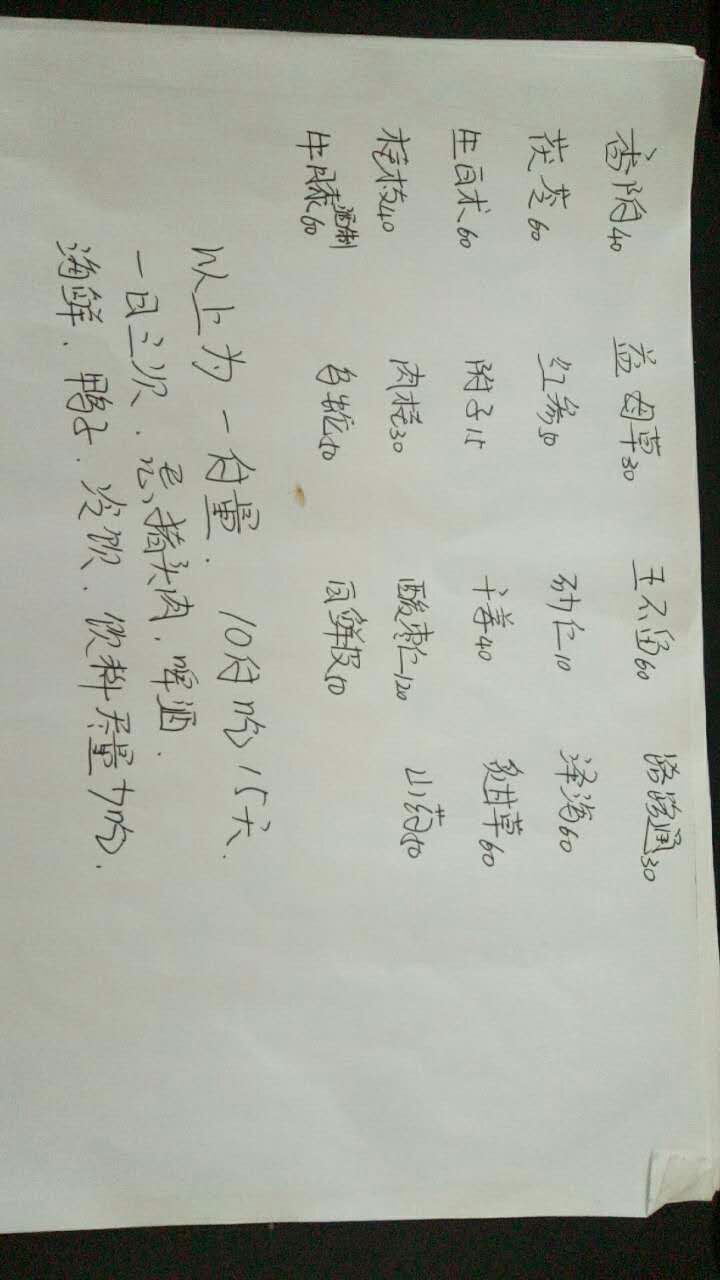 香附40 益母草30 王不留60 路路通30
茯苓60 红参50 砂仁10 泽泻60
生白术60 附子15 干姜40 炙甘草60
桂枝40 肉桂30 酸枣仁120 山药50
牛膝酒制60 乌蛇50 白鲜皮50
以上为一付量. 10付吃15天.
一日三次. 忌猪头肉. 啤酒.
海鲜. 鸭子. 冷饮. 饮料尽量少吃.